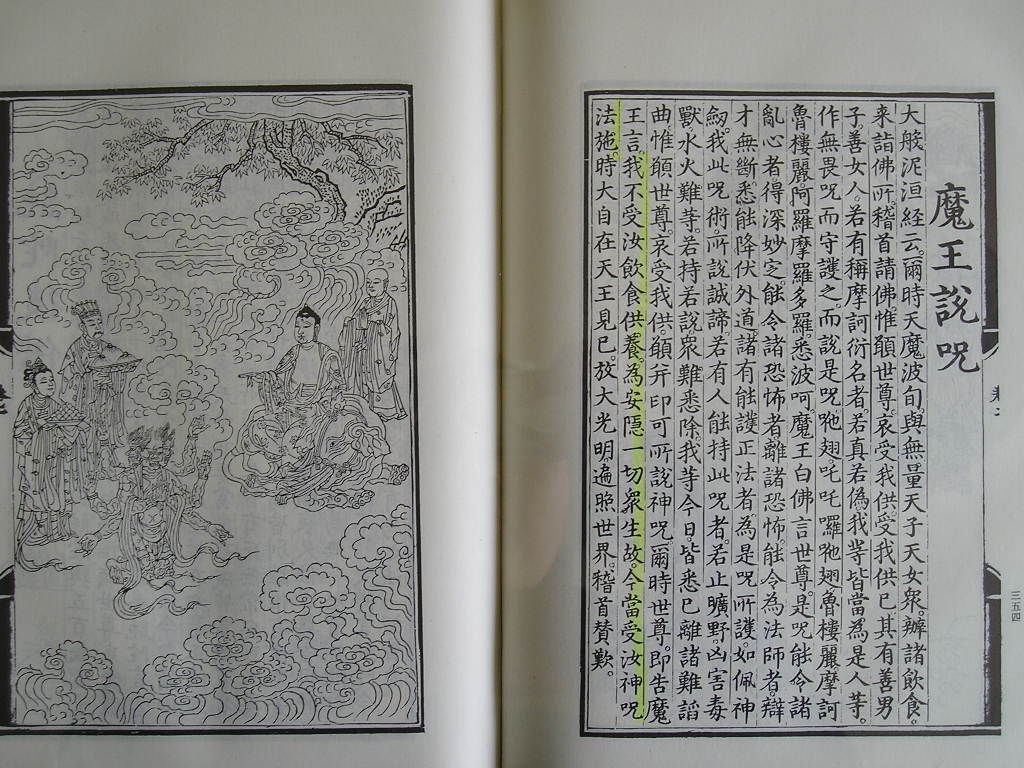 魔王說呪
大般泥洹経云。爾時天魔波旬。與無量天子天女眾。辦諸飲食。
来詣佛所。稽首請佛。惟願世尊。哀受我供。受我供已。其有善男
子善女人。若有稱摩訶衍名者。若真若偽。我等皆當為是人等。
作無畏呪。而守護之。而說是呪。牠翅吒吒囉牠翅魯樓麗摩訶
魯樓麗阿羅摩羅多羅悉波呵。魔王白佛言世尊。是呪能令諸
亂心者。得深妙定。能令諸恐怖者。離諸恐怖。能令為法師者。辯
才無斷。悉能降伏外道。諸有能護正法者。為是呪所護。如佩神
劒。我此呪術。所說誠諦。若有人能持此呪者。若止曠野凶害毒
獸水火難等。若持若說。眾難悉除。我等今日。皆悉已離諸難諂
曲。惟願世尊。哀受我供。願并印可所說神呪。爾時世尊。即告魔
王言。我不受汝飲食供養。為安隱一切眾生故。今當受汝神呪
法施。時大自在天王見已。放大光明。遍照世界。稽首賛歎。
三五四